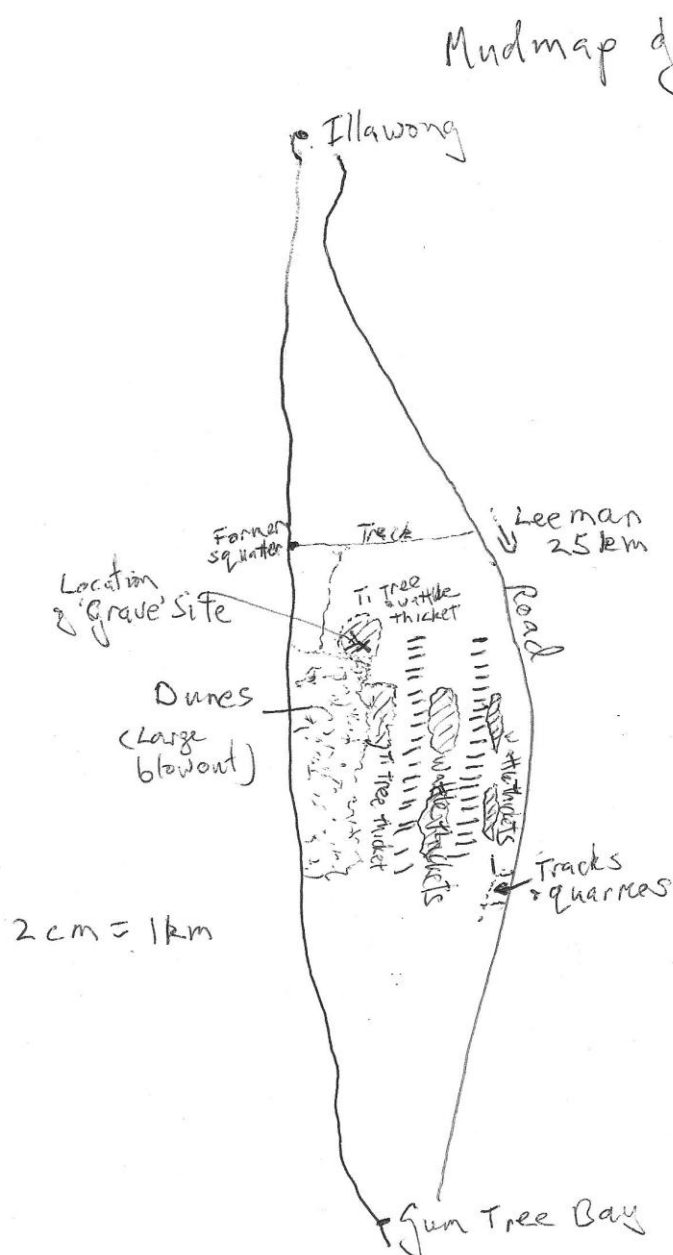 Mudmap of
Illawong
Former
squatter
Track
Leeman
25km
Location
of 'Grave' Site
Ti Tree
& wattle
thicket
Road
Dunes
(Large
blowout)
Ti Tree thicket
Wattle thickets
Wattle thickets
Tracks
& quarries
2 cm = 1 km
Gum Tree Bay